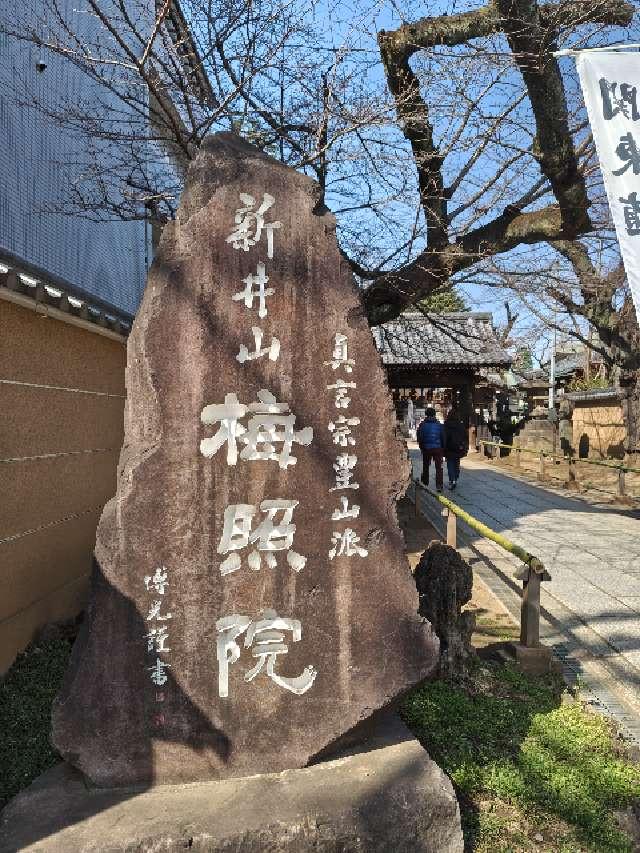 真言宗豊山派
新井山
梅照院
博光謹書
関東直